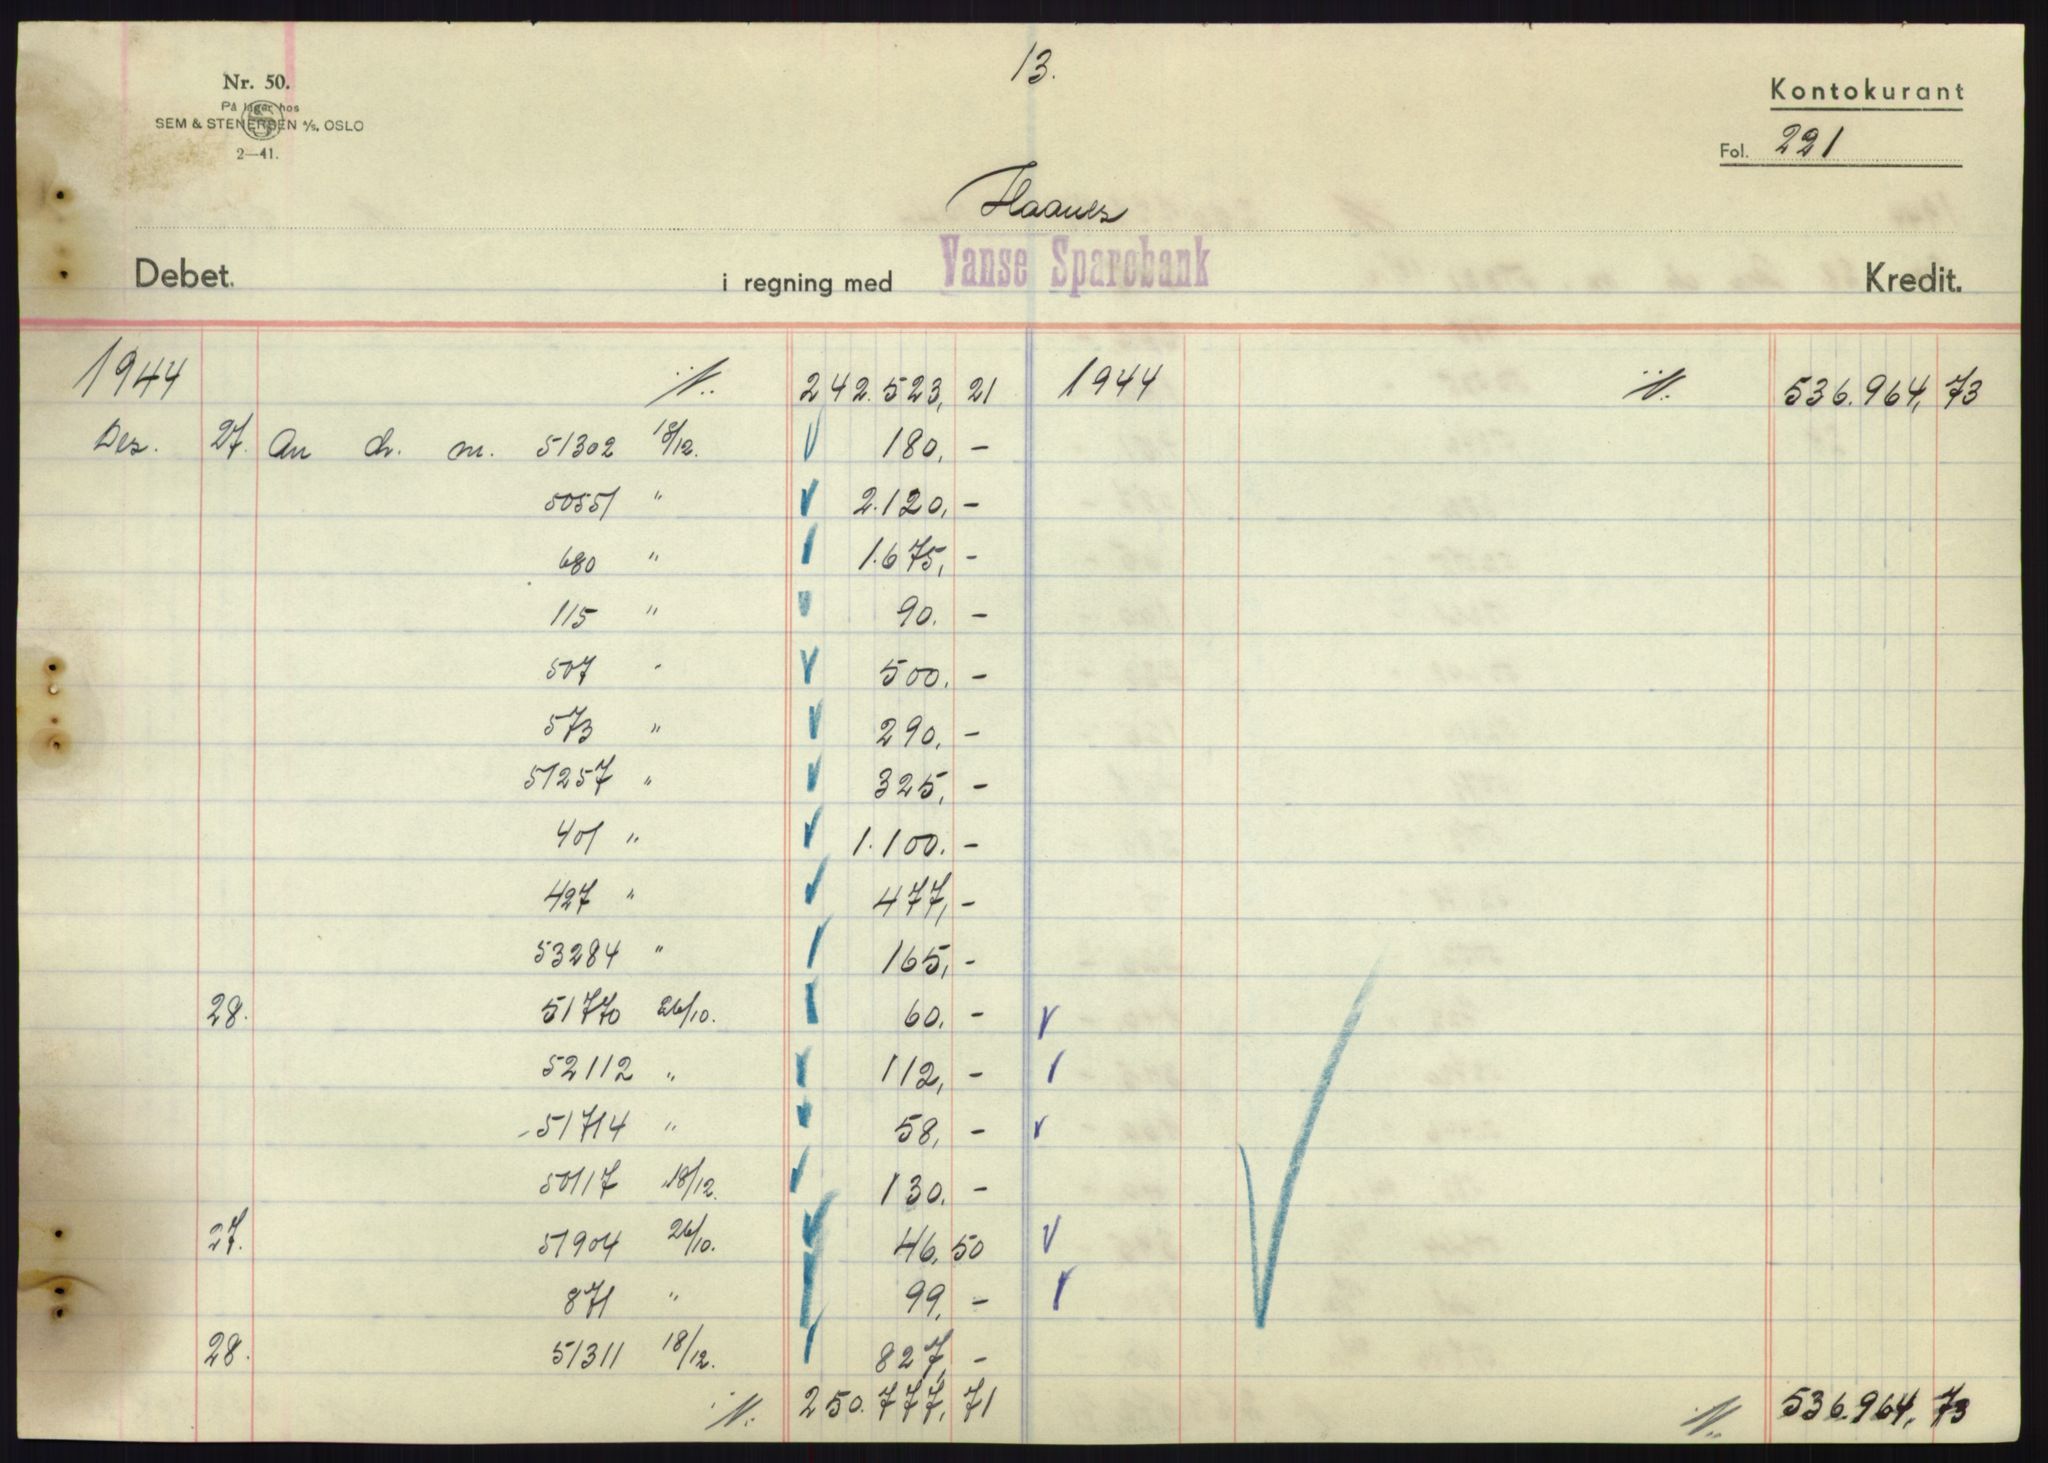 13.
Nr. 50.
På lager hos
SEM & STENERSEN A/S, OSLO
2—41.
Kontokurant
Fol. 221
Haanes
Debet. i regning med Vanse Sparebank Kredit.
1944 242.523, 21 1944 536.964, 73
Des. 27. An ch. m. 51302 18/12. 180, -
50551 " 2.120, -
680 " 1.675, -
115 " 90. -
507 " 500. -
573 " 290, -
51257 " 325, -
401 " 1.100. -
427 " 477, -
53284 " 165, -
28. 51770 26/10. 60. -
52112 " 112, -
51714 " 58, -
50117 18/12. 130. -
27. 51904 26/10. 46, 50
871 " 99, -
28. 51311 18/12. 827, -
250.777, 71 536.964, 73